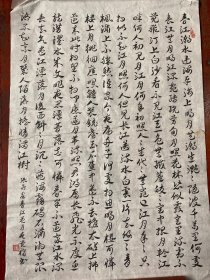 春江潮水連海平海上明月共潮生灩灩隨波千萬里何處
春江無月明江流宛轉繞芳甸月照花林皆似霰空里流霜不
覺飛汀上白沙看不見江天一色無纖塵皎皎空中孤月輪江
畔何人初見月江月何年初照人人生代代無窮已江月年年只
相似不知江月待何人但見長江送流水白雲一片去悠悠青
楓浦上不勝愁誰家今夜扁舟子何處相思明月樓可憐
樓上月徘徊應照離人妝鏡臺玉戶簾中卷不去搗衣砧上拂
還來此時相望不相聞願逐月華流照君鴻雁長飛光不度魚
龍潛躍水成文昨夜閑潭夢落花可憐春半不還家江水流
春去欲盡江潭落月復西斜斜月沉沉藏海霧碣石瀟湘無限
路不知乘月幾人歸落月搖情滿江樹 春江花月夜